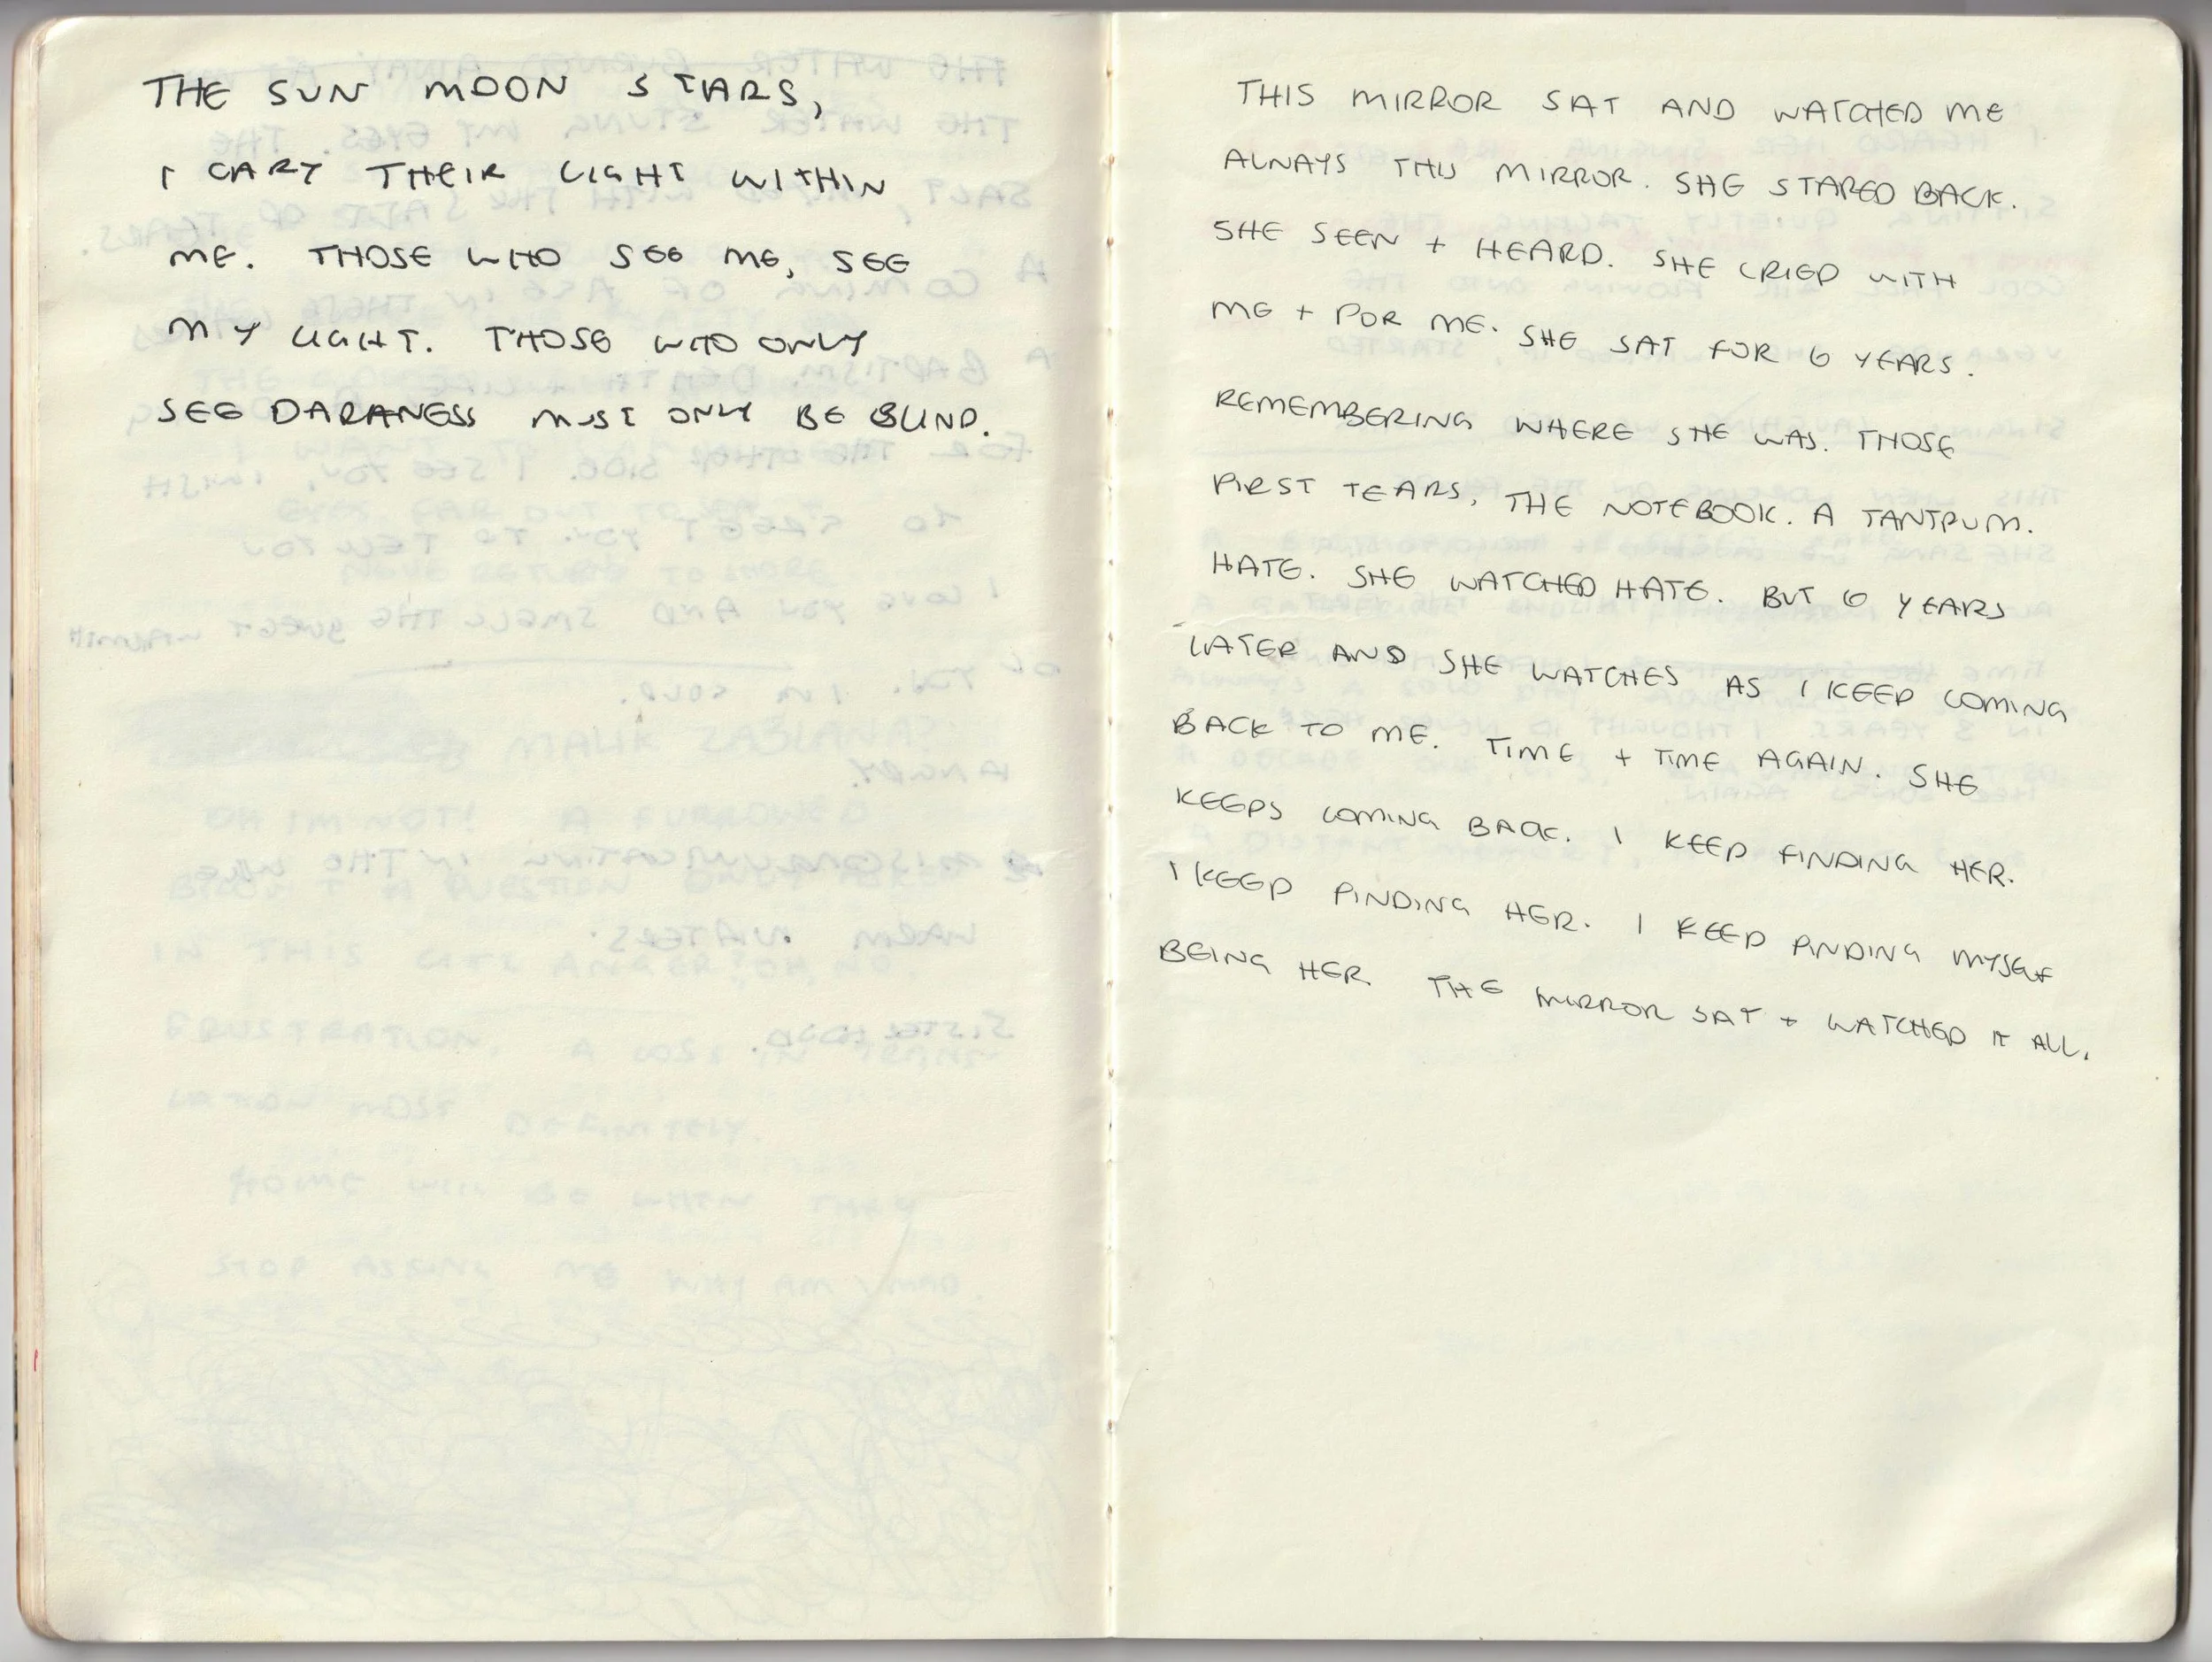 THE SUN MOON STARS,
I CARY THEIR LIGHT WITHIN
ME. THOSE WHO SEE ME, SEE
MY LIGHT. THOSE WHO ONLY
SEE DARKNESS MUST ONLY BE BLIND.
THIS MIRROR SAT AND WATCHED ME
ALWAYS THIS MIRROR. SHE STARED BACK.
SHE SEEN + HEARD. SHE CRIED WITH
ME + FOR ME. SHE SAT FOR 6 YEARS.
REMEMBERING WHERE SHE WAS. THOSE
FIRST TEARS, THE NOTEBOOK. A TANTRUM.
HATE. SHE WATCHED HATE. BUT 6 YEARS
LATER AND SHE WATCHES AS I KEEP COMING
BACK TO ME. TIME + TIME AGAIN. SHE
KEEPS COMING BACK. I KEEP FINDING HER.
I KEEP FINDING HER. I KEEP FINDING MYSELF
BEING HER THE MIRROR SAT + WATCHED IT ALL.